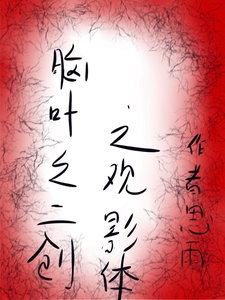 胸叶之二创
之观影体
作者思雨